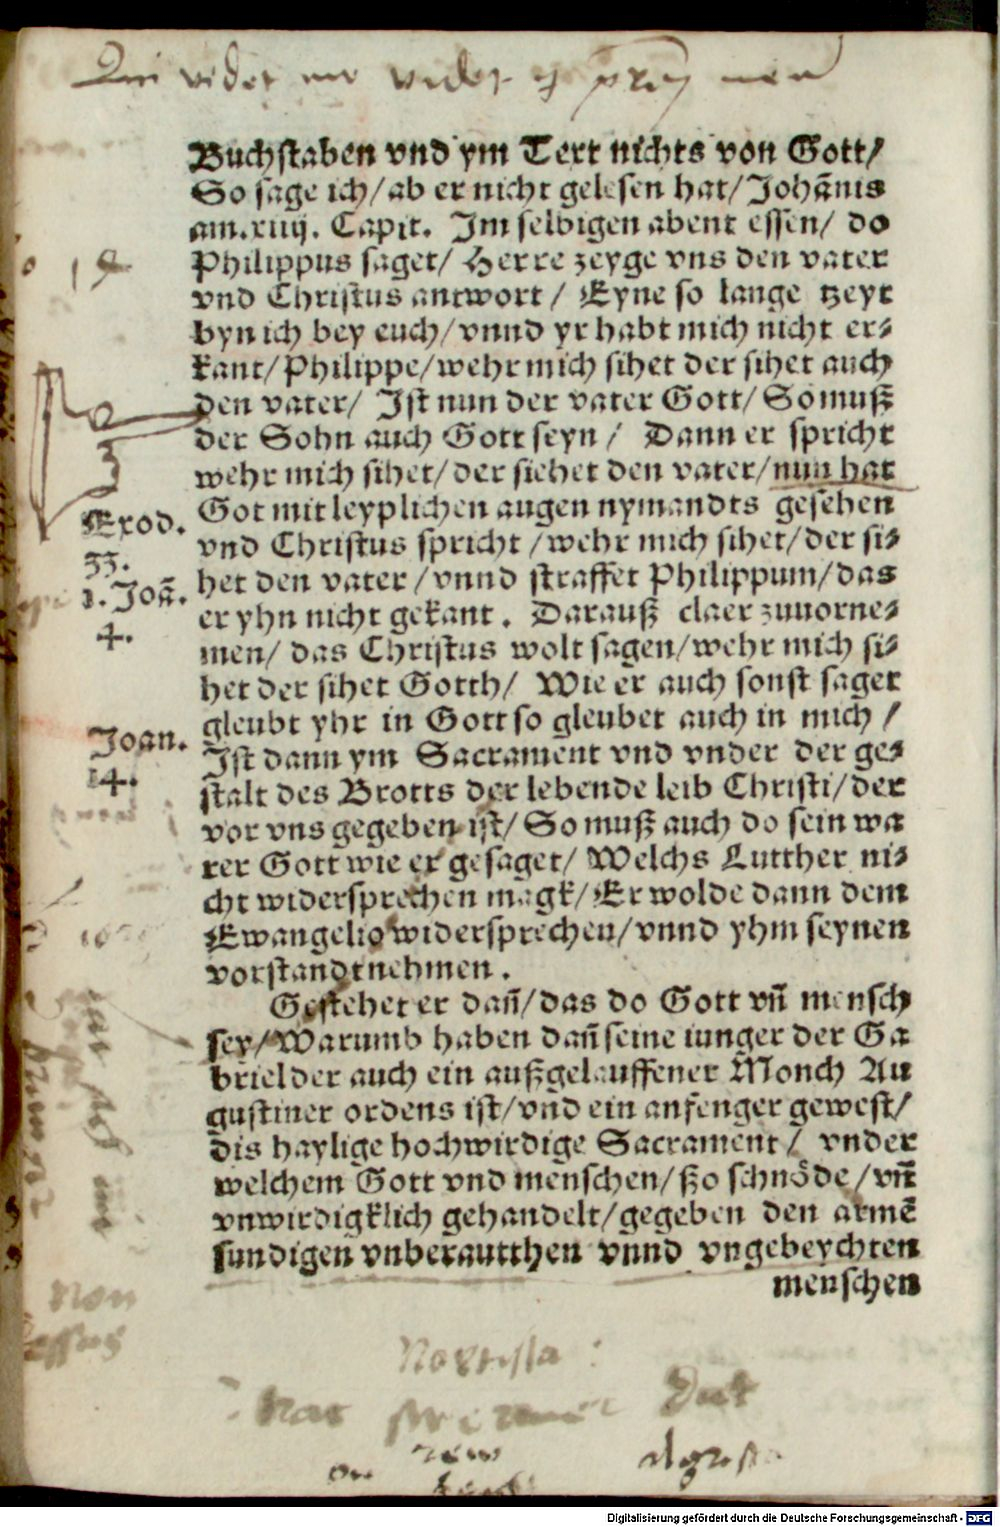 Qui videt me videt et prem meu
Buchstaben vnd ym Text nichts von Gott/
So sage ich/ ab er nicht gelesen hat/ Johānis
am.xiiij. Capit. Im selbigen abent essen/ do
Philippus saget/ Herre zeyge vns den vater
vnd Christus antwort/ Eyne so lange tzeyt
byn ich bey euch/ vnnd yr habt mich nicht er⸗
kant/ Philippe/ wehr mich sihet der sihet auch
den vater/ Ist nun der vater Gott/ So muß
der Sohn auch Gott seyn/ Dann er spricht
wehr mich sihet/ der siehet den vater/ nun hat
Got mit leyplichen augen nymandts gesehen
vnd Christus spricht/ wehr mich sihet/ der si⸗
het den vater/ vnnd straffet Philippum/ das
er yhn nicht gekant. Darauß claer zuuorne⸗
men/ das Christus wolt sagen/ wehr mich si⸗
het der sihet Gotth/ Wie er auch sonst saget
gleubt yhr in Gott so gleubet auch in mich/
Ist dann ym Sacrament vnd vnder der ge⸗
stalt des Brotts der lebende leib Christi/ der
vor vns gegeben ist/ So muß auch do sein wa
rer Gott wie er gesaget/ Welchs Lutther ni⸗
cht widersprechen magk/ Er wolde dann dem
Ewangelio widersprechen/ vnnd yhm seynen
vorstandt nehmen.
Gestehet er dañ/ das do Gott vñ mensch
sey/ Warumb haben dañ seine iunger der Ga
briel der auch ein außgelauffener Monch Au
gustiner ordens ist/ vnd ein anfenger gewest/
dis haylige hochwirdige Sacrament/ vnder
welchem Gott vnd menschen/ ßo schnöde/ vñ
vnwirdigklich gehandelt/ gegeben den armē
sundigen vnberautthen vnnd vngebeychten
menschen
19
Exod.
33.
1. Joā.
4.
Joan.
14.
Non
Digitalisierung gefördert durch die Deutsche Forschungsgemeinschaft - DFG